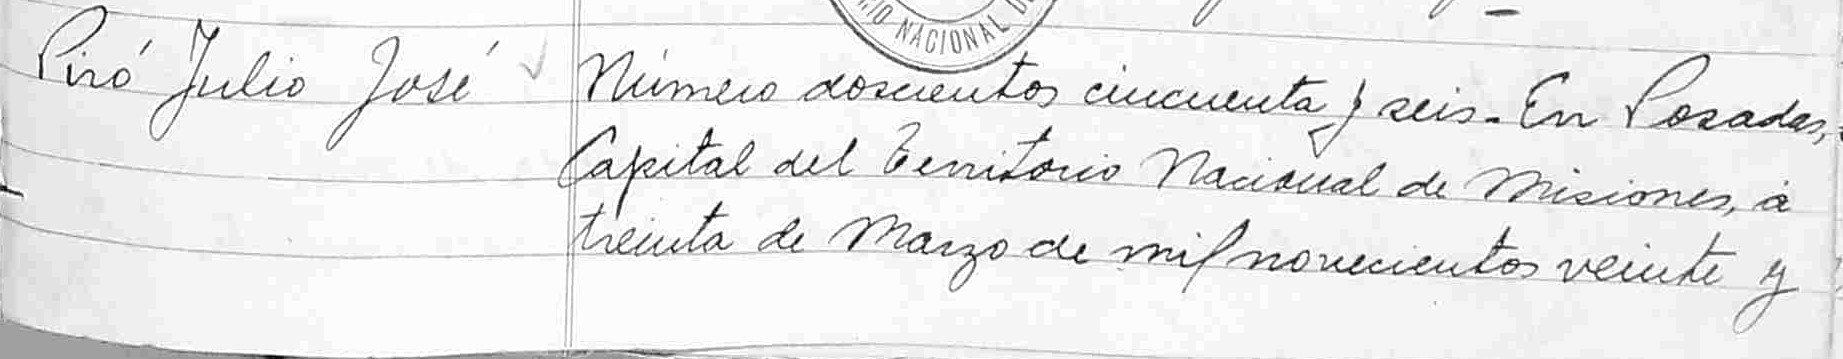 NACIONAL
Piró Julio José
Número doscientos cincuenta y seis. En Posadas,
Capital del Territorio Nacional de Misiones, á
treinta de Marzo de mil novecientos veinte y